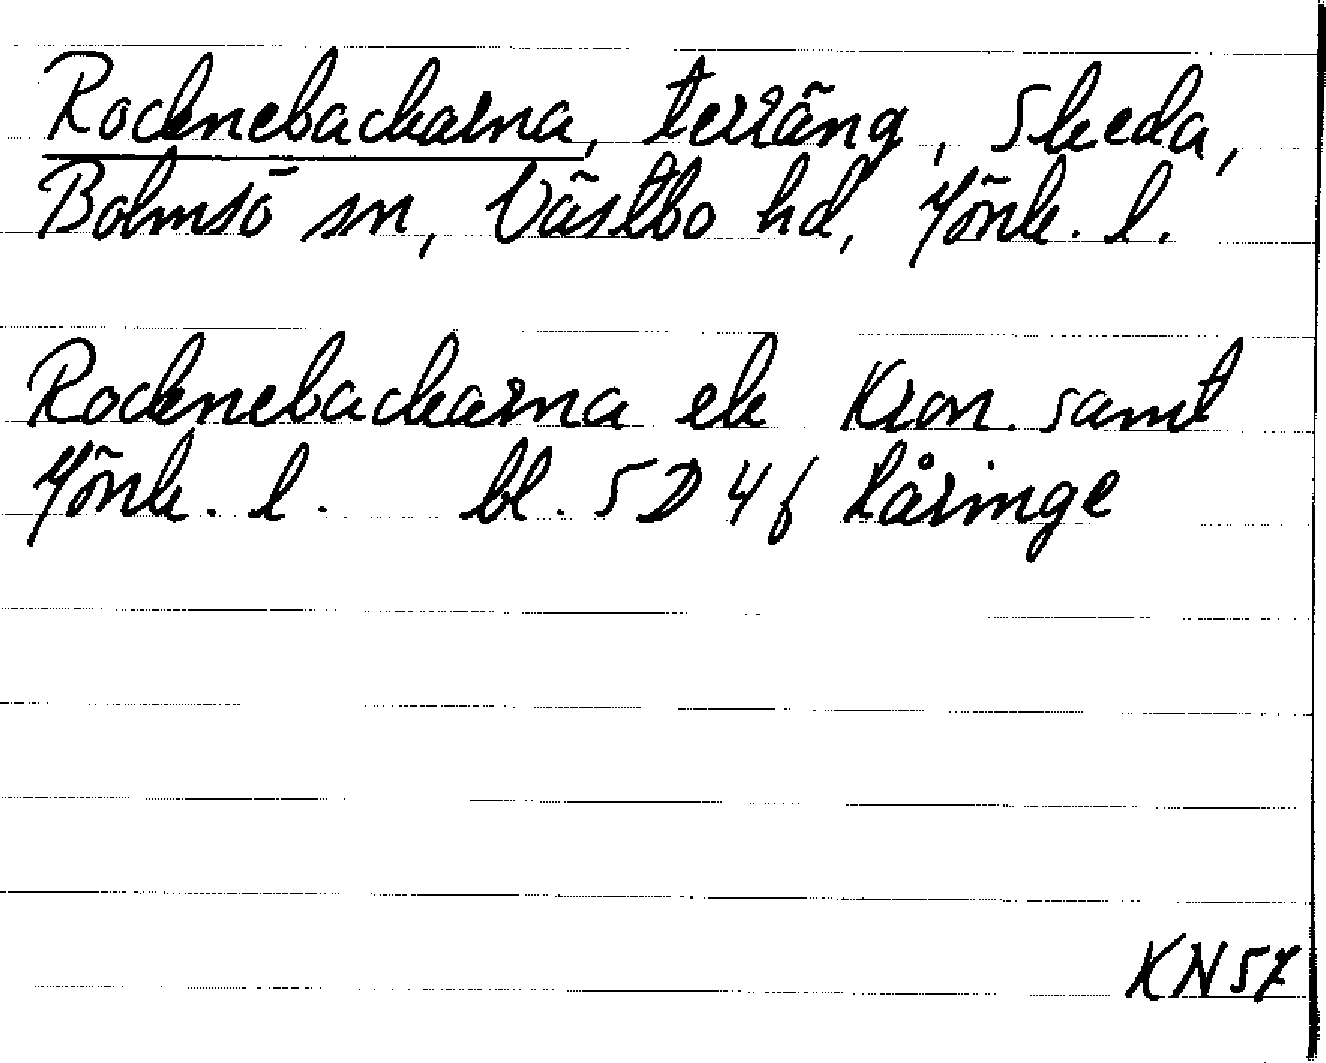 Rocknebackarna, terräng, Skeda,
Bolmsö sn, Västbo hd, Jönk. l.
Rocknebackarna ek Kron. samt
Jönk. l. bl. 5D 4f Håringe
KN57